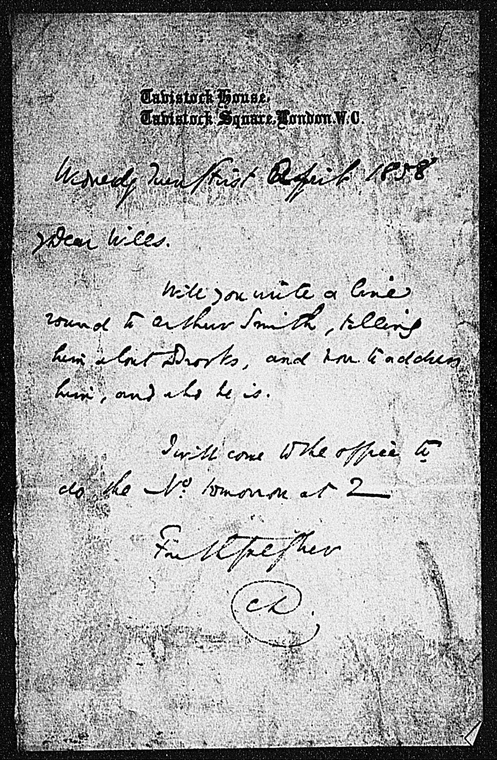 Tavistock House,
Tavistock Square, London. W.C.
First April 1858
Dear Wills.
Will you write a line
round to Arthur Smith, telling
him about and how to address
him, and who he is.
I will come to the office to
do the No. tomorrow at 2
ever
CD.